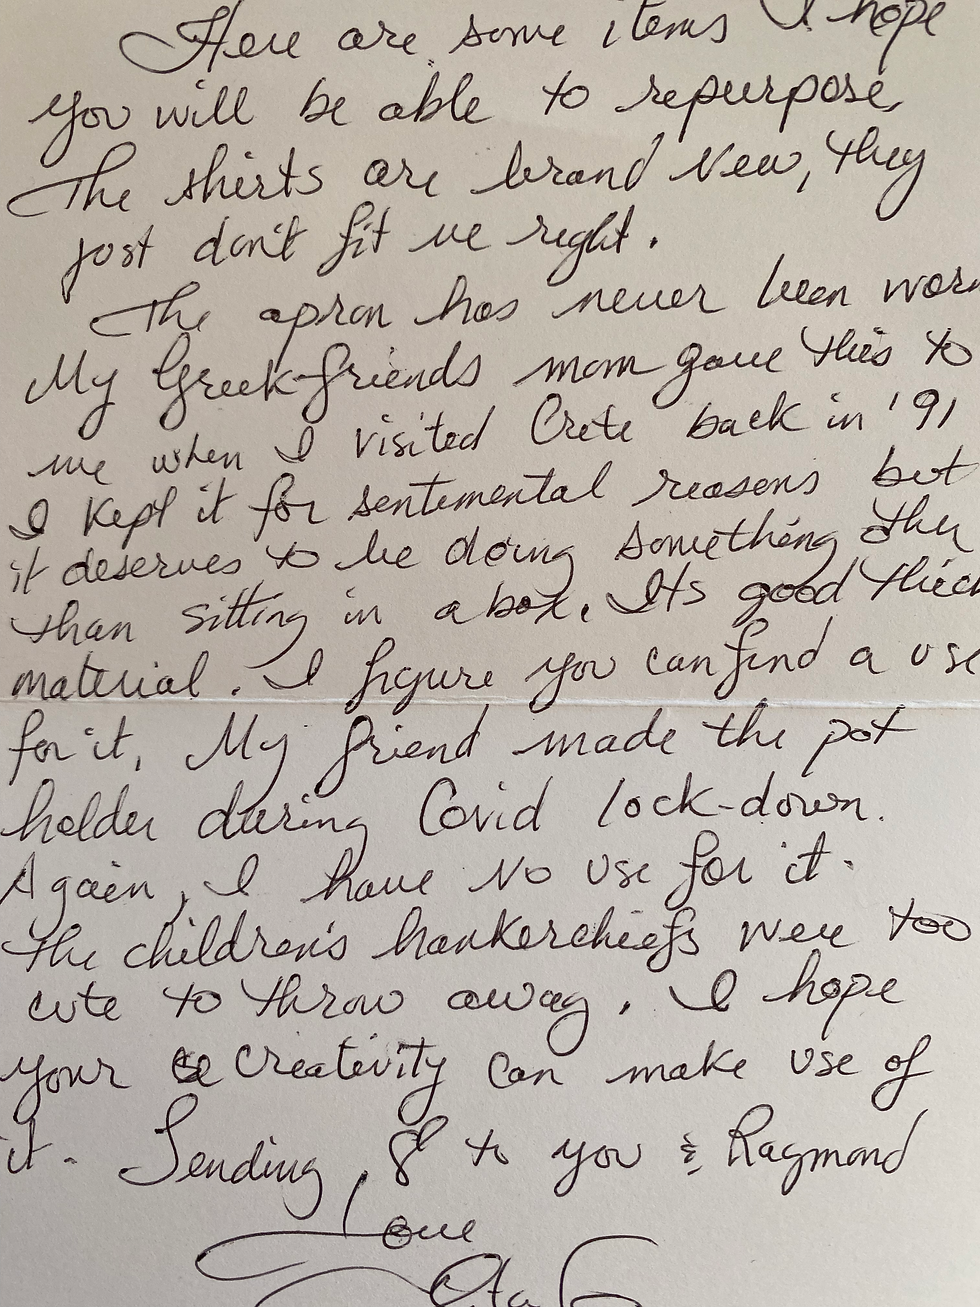 Here are some items I hope
you will be able to repurpose,
The shirts are brand new, they
just don't fit me right.
The apron has never been worn
My Greek friends mom gave this to
me when I visited Crete back in '91
I kept it for sentimental reasons but
it deserves to be doing something other
than sitting in a box. Its good thick
material. I figure you can find a use
for it. My friend made the pot
holder during Covid lock-down.
Again, I have No use for it.
The children's hankerchiefs were too
cute to throw away. I hope
your creativity can make use of
it. Sending to you & Raymond
Love